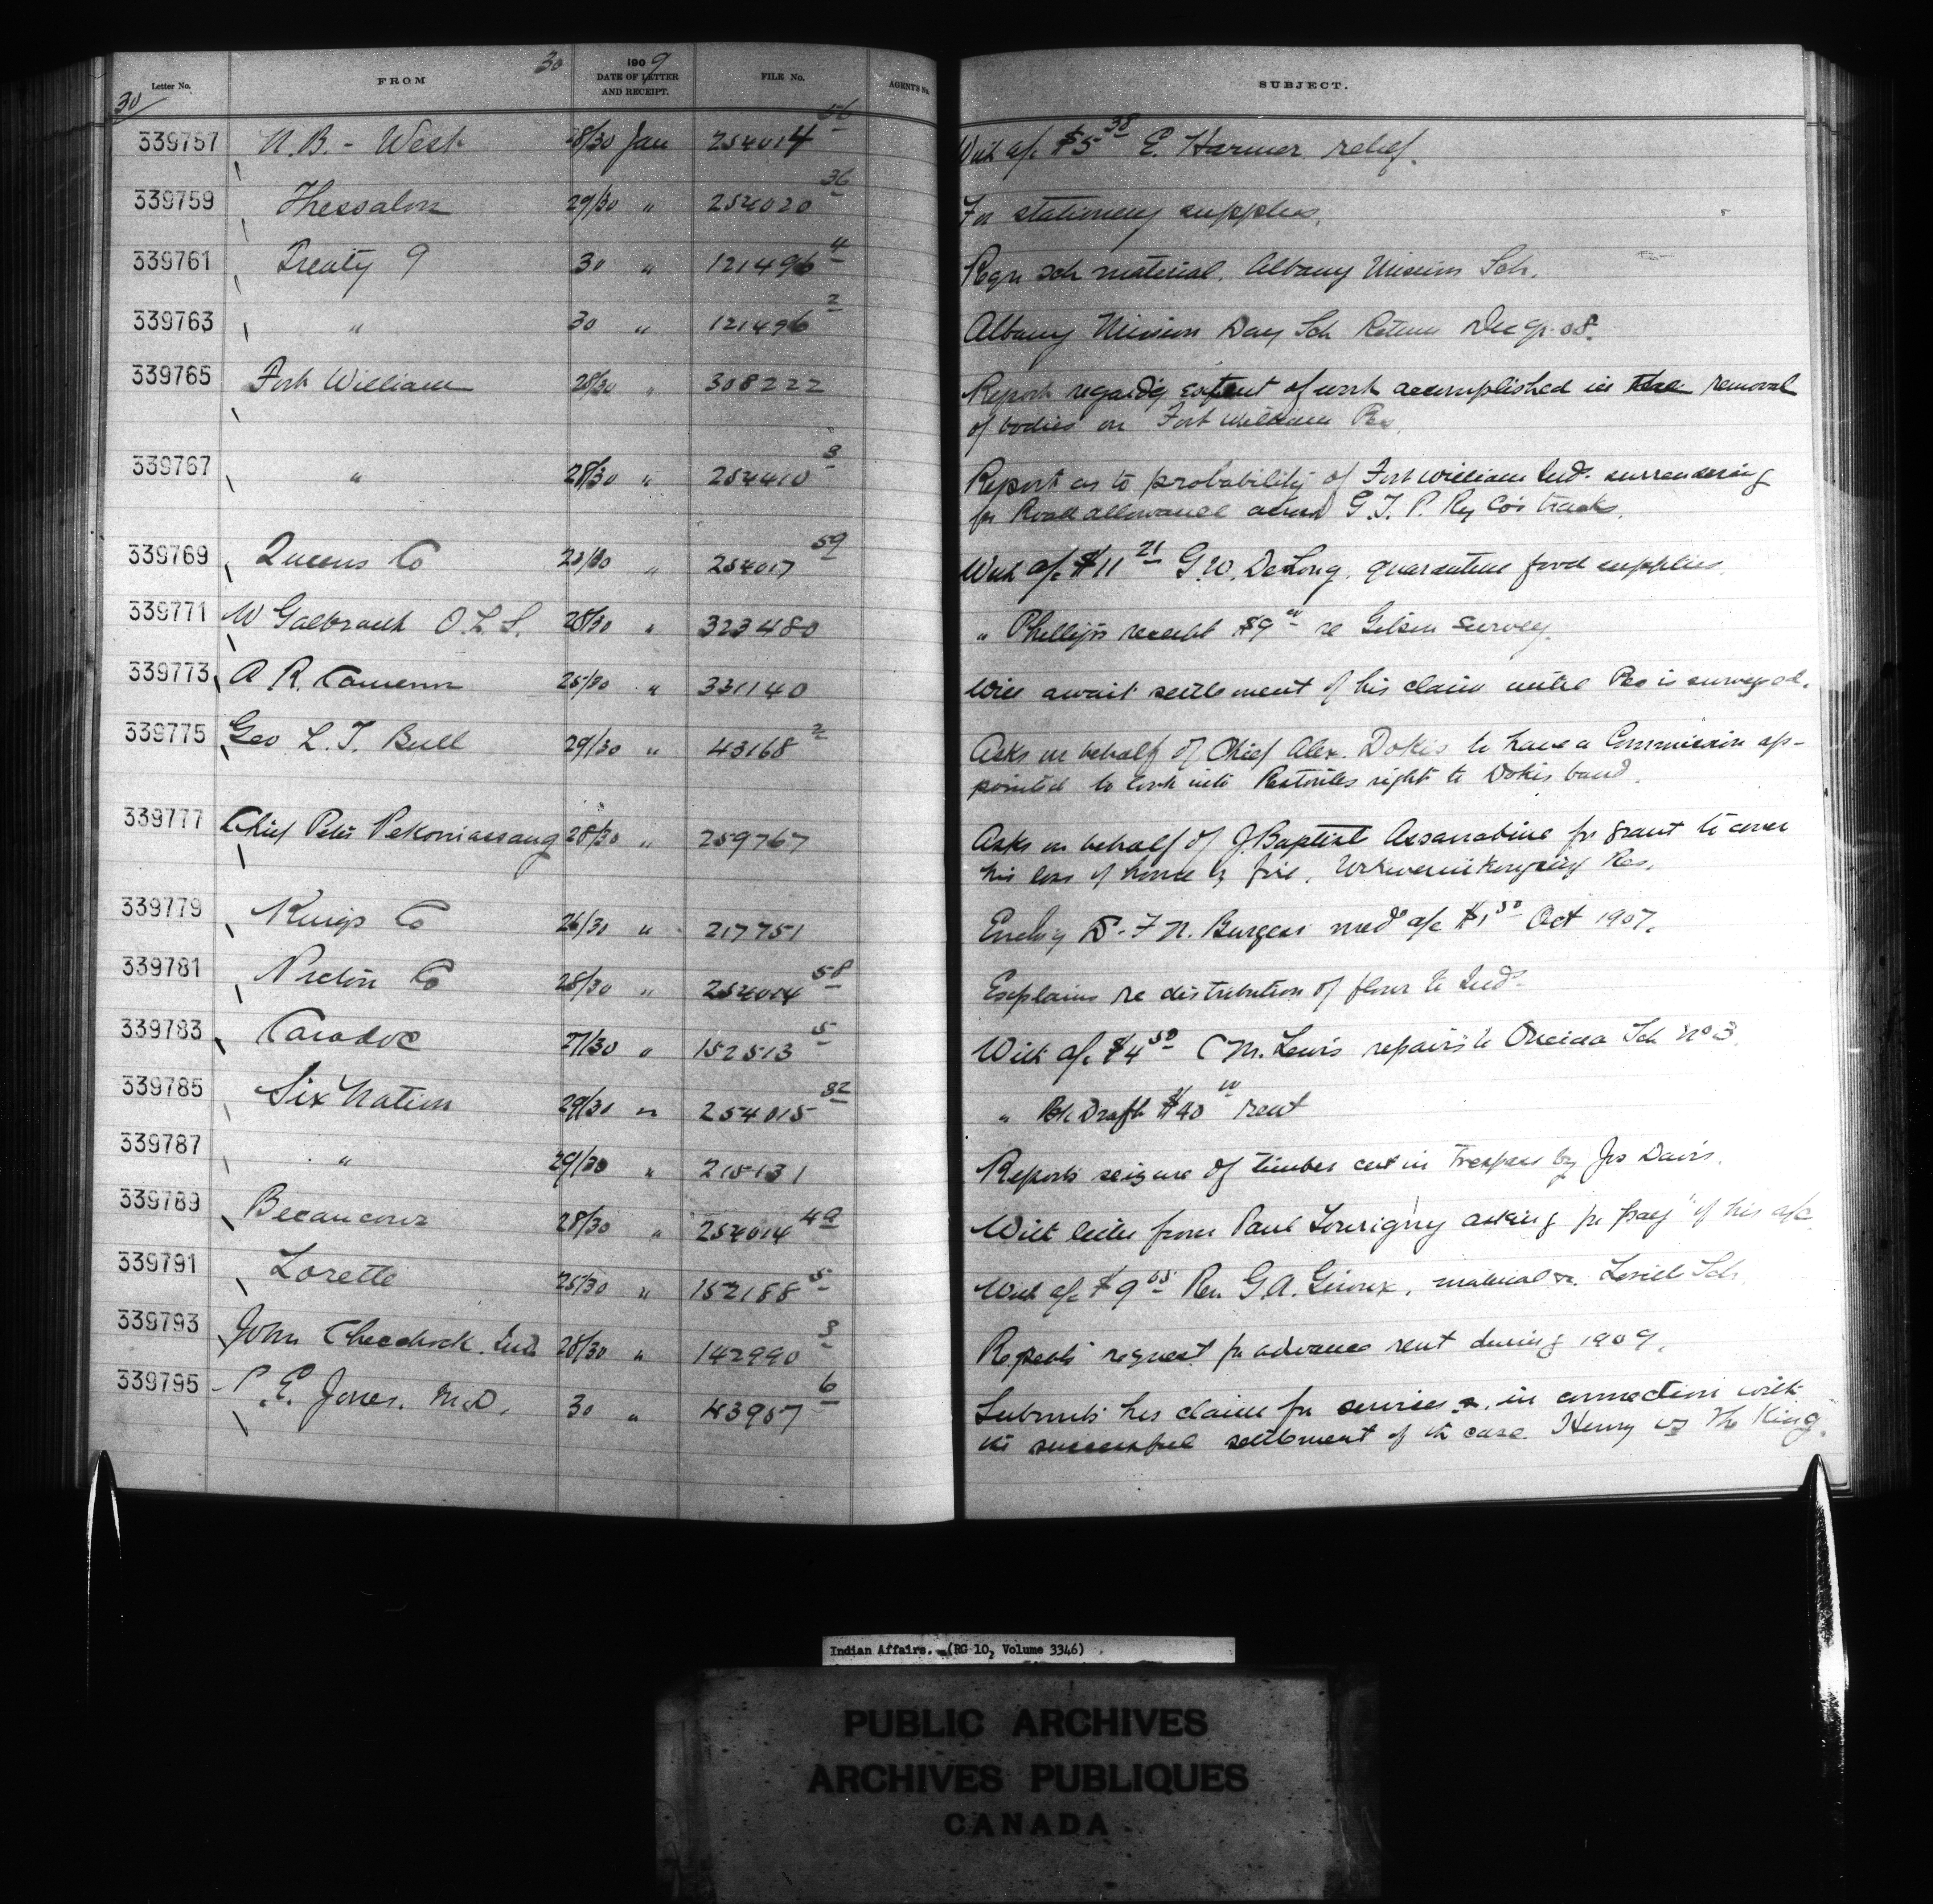 Letter No. FROM 30 1909 DATE OF LETTER AND RECEIPT. FILE No. AGENT'S No. SUBJECT.
30
339757 N.B. - West 28/30 Jan 254014 56 With a/c $5 38 E. Harmer relief.
339759 Thessalon 29/30 " 254020 36 For stationery supplies.
339761 Treaty 9 30 " 121496 4 Reqn sch material. Albany Mission Sch.
339763 " 30 " 121496 2 Albany Mission Day Sch Return Dec qr. 08.
339765 Fort William 28/30 " 308222 Report regardg extent of work accomplished in the removal
of bodies on Fort William Res.
339767 " 28/30 " 254410 3 Report as to probability of Fort William Inds. surrendering
for Road allowance across G.T.P. Ry Co's tracks.
339769 Queens Co 23/30 " 254017 59 With a/c $11 21 G.W. DeLong. quarantine food supplies.
339771 W Galbraith O.L.S. 28/30 " 323480 " Phillips receipt $9 00 re Gibson survey.
339773 A R. Cameron 25/30 " 331140 Will await settlement of his claim until Res is surveyed.
339775 Geo L. T. Bull 29/30 " 43168 2 Asks on behalf of Chief Alex. Dokis to have a Commission ap-
pointed to look into Restoules right to Dokis band.
339777 Chief Peter Pekoniassang 28/30 " 259767 Asks on behalf of J. Baptist Assanabine for grant to cover
his loss of house by fire, Res.
339779 Kings Co 26/30 " 217751 Enclsg Dr. F N. Burgess med a/c $1 50 Oct 1907.
339781 Pictou Co 28/30 " 254014 58 Explains re distribution of flour to Inds.
339783 Caradoc 27/30 " 152513 5 With a/c $4 50 C M. Lewis repairs to Oneida Sch No 3.
339785 Six Nation 29/30 " 254015 32 " Bk Draft $40 00 rent
339787 " 29/30 " 215131 Reports seizure of timber cut in trespass by Jos Davis.
339789 Becancour 28/30 " 254014 49 With letter from Paul asking for payt of his a/c.
339791 Lorette 25/30 " 152188 5 With a/c $9 65 Rev. G.A. Giroux, material for Lorette Sch.
339793 John Checchock. Ind 28/30 " 142990 3 Repeats request for advance rent during 1909.
339795 P. E. Jones. M.D. 30 " 43957 6 Submits his claim for services in connection with
the successful settlement of the case Henry vs The King.
Indian Affairs. (RG 10, Volume 3346)
PUBLIC ARCHIVES
ARCHIVES PUBLIQUES
CANADA